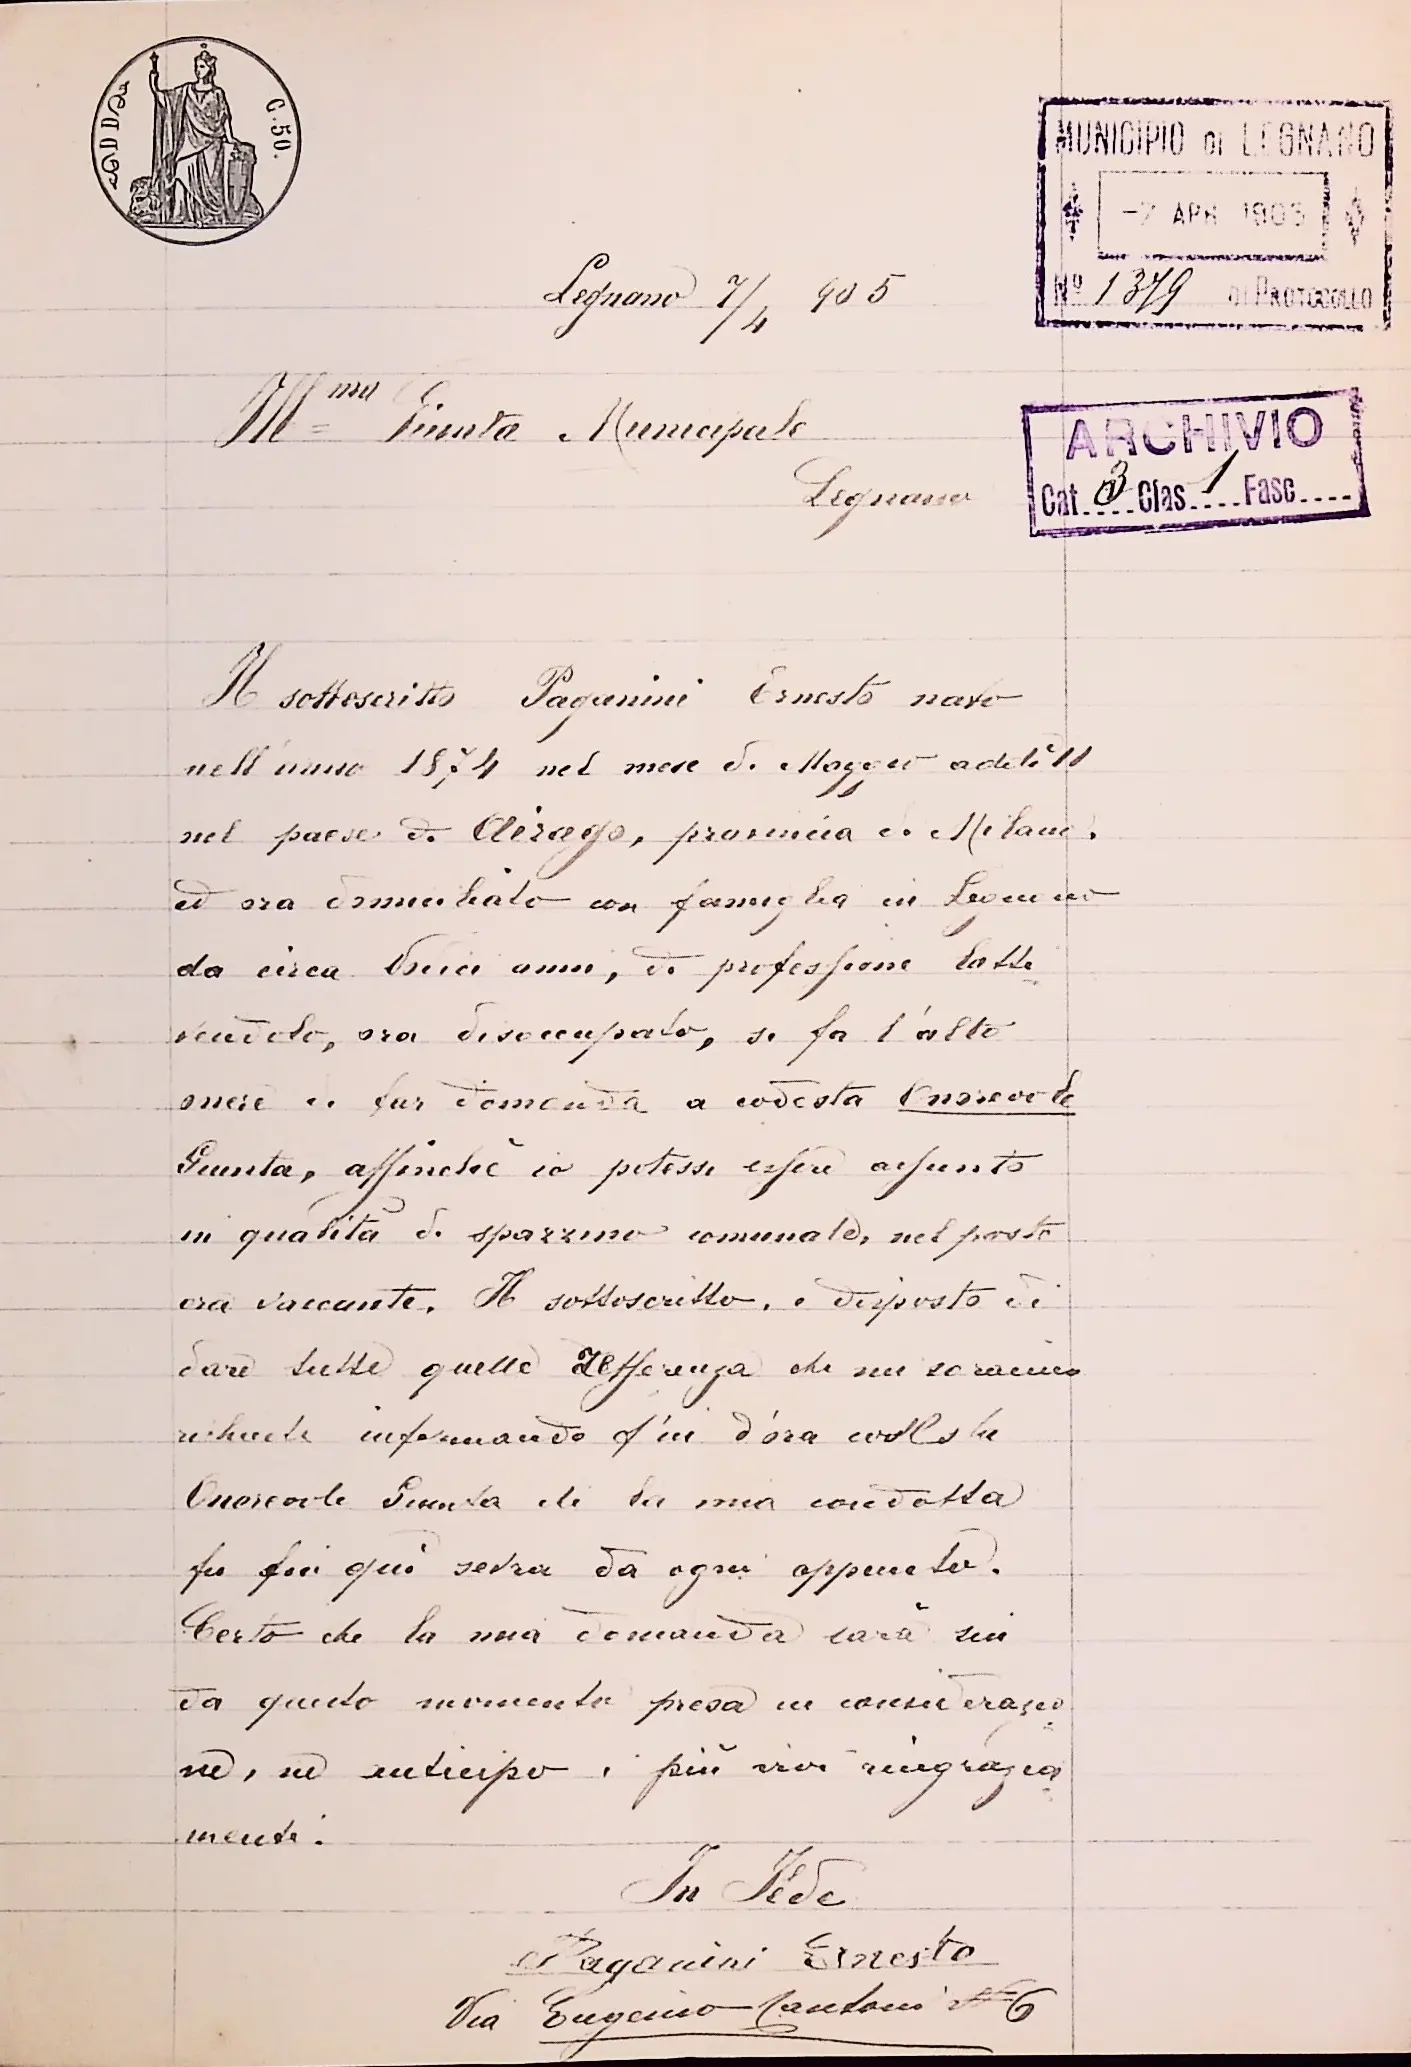 C. 50.
MUNICIPIO DI LEGNANO
-7 APR 1905
Nº 1379 DI PROTOCOLLO
Legnano 7/4 905
Ill.ma Giunta Municipale
Legnano
ARCHIVIO
Cat. 3 Clas. 1 Fasc.
Il sottoscritto Paganini Ernesto nato
nell'anno 1874 nel mese di Maggio addì 11
nel paese di Airago, provincia di Milano,
ed ora domiciliato con famiglia in Legnano
da circa undici anni, di professione latti
vendolo, ora disoccupato, si fa l'alto
onere di far domanda a codesta Onorevole
Giunta, affinchè io potessi essere assunto
in qualità di spazzino comunale, nel posto
ora vaccante. Il sottoscritto, è disposto di
dare tutte quelle Refferenza che mi saranno
richieste informando f'in d'ora codesta
Onorevole Giunta che la mia condotta
fu fin qui sevra da ogni appunto.
Certo che la mia domanda sarà sin
da questo momento presa in considerazio
ne, ne anticipo i più vivi ringrazia
menti.
In Fede
Paganini Ernesto
Via Eugenio Cantoni Nº 6